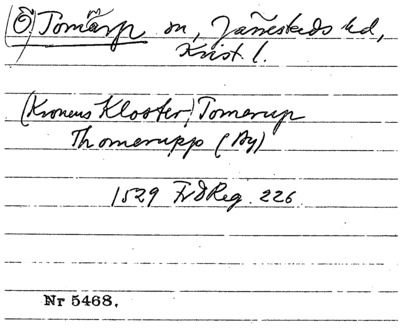 (Ö) Tommarp sn, Järrestads hd,
Krist l.
(Kronens Kloster) Tomerup
Thomerupp (By)
1529 FrdReg. 226.
Nr 5468.